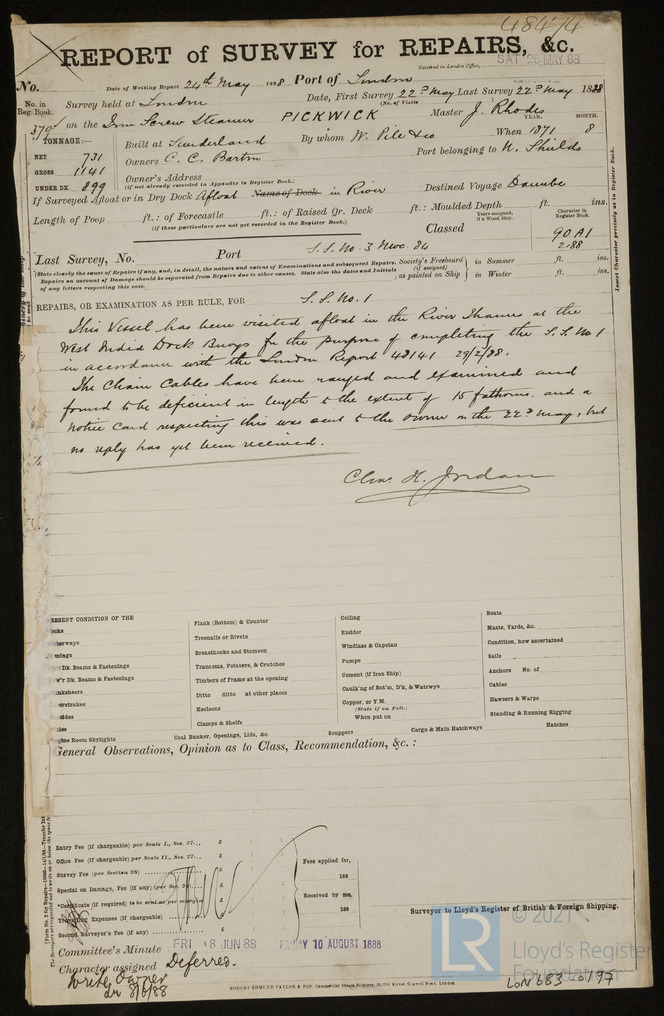 48474
REPORT of SURVEY for REPAIRS, &c.
Received in London Office,
SAT. 26 MAY 88
No.
Date of Writing Report 24th May 1888 Port of London
No. in Reg. Book.
Survey held at London
Date, First Survey 22nd May Last Survey 22nd May 1888
(No. of Visits
on the Iron Screw Steamer PICKWICK
Master J. Rhodes
TONNAGE:—
YEAR. MONTH.
Built at Sunderland By whom W. Pile & Co When 1871 8
NET 731
Owners C. C. Barton
Port belonging to N. Shields
GROSS 1141
Owner's Address
(if not already recorded in Appendix to Register Book.)
UNDER DK. 899
If Surveyed Afloat or in Dry Dock Afloat Name of Dock in River Destined Voyage Danube
Length of Poop ft.: of Forecastle ft.: of Raised Qr. Deck ft.: Moulded Depth ft. ins.
(if these particulars are not yet recorded in the Register Book.)
Years assigned, if a Wood Ship.
Character in Register Book.
Classed
90 A1
2.88
Insert Character precisely as in Register Book.
Last Survey, No. Port S.S. No. 3 Nwc. 84
(State clearly the cause of Repairs if any, and, in detail, the nature and extent of Examinations and subsequent Repairs.
Repairs on account of Damage should be separated from Repairs due to other causes. State also the dates and Initials
of any letters respecting this case.
Society's Freeboard (if assigned) as painted on Ship
in Summer ft. ins.
in Winter ft. ins.
REPAIRS, OR EXAMINATION AS PER RULE, FOR S.S. No. 1
This Vessel has been visited afloat in the River Thames at the
West India Dock Buoys for the purpose of completing the S.S. No 1
in accordance with the London Report 48141 29/2/88.
The Chain Cables have been ranged and examined and
found to be deficient in length to the extent of 15 fathoms, and a
notice card respecting this was sent to the owner on the 22nd May, but
no reply has yet been received.
Chas. H. Jordan
PRESENT CONDITION OF THE
Dk. Beams & Fastenings
Dk. Beams & Fastenings
Engine Room Skylights
Plank (Bottom) & Counter
Treenails or Rivets
Breasthooks and Stemson
Transoms, Pointers, & Crutches
Timbers of Frame at the opening
Ditto ditto at other places
Keelsons
Clamps & Shelfs
Coal Bunker, Openings, Lids, &c.
Ceiling
Rudder
Windlass & Capstan
Pumps
Cement (if Iron Ship)
Caulk'ng of Bot'm, D'k, & Watrwys
Copper, or Y.M.
(State if on Felt.)
When put on
Scuppers
Cargo & Main Hatchways
Boats
Masts, Yards, &c.
Condition, how ascertained
Sails
Anchors No. of
Cables
Hawsers & Warps
Standing & Running Rigging
Hatches
General Observations, Opinion as to Class, Recommendation, &c. :
Entry Fee (if chargeable) per Scale I., Sec. 27... £ : :
Office Fee (if chargeable) per Scale II., Sec. 27... £ : :
Survey Fee (per Section 28) £ : :
Special on Damage, Fee (if any) (per Sec. 28) £ : :
Certificate (if required) to be sent as per margin
Travelling Expenses (if chargeable) £ : :
Second Surveyor's Fee (if any) £ : :
Fees applied for,
188
Received by me,
188
Surveyor to Lloyd's Register of British & Foreign Shipping.
Committee's Minute FRI 8 JUN 88 FRIDAY 10 AUGUST 1888
Character assigned Deferred.
Write Owner
8/6/88
ROBERT EDMUND TAYLOR & SON, Commercial Steam Printers, 19, Old Street, Goswell Road, London.
LR
© 2021
Lloyd's Register
Foundation
LON 683-0197